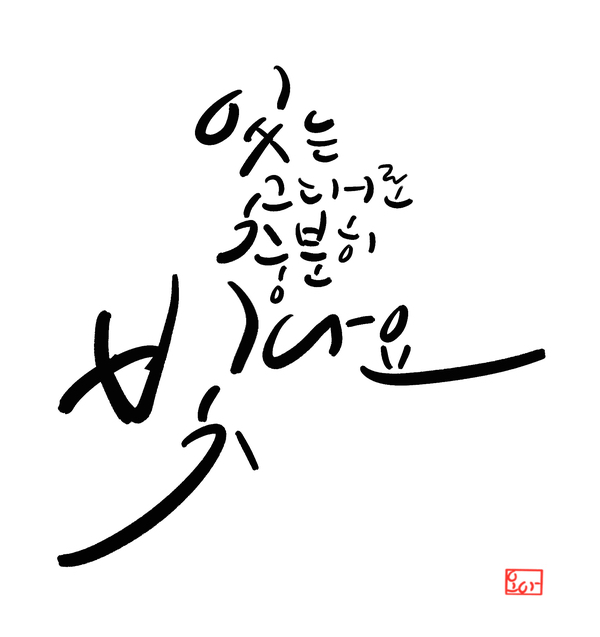 있는
그대로
충분히
빛나요